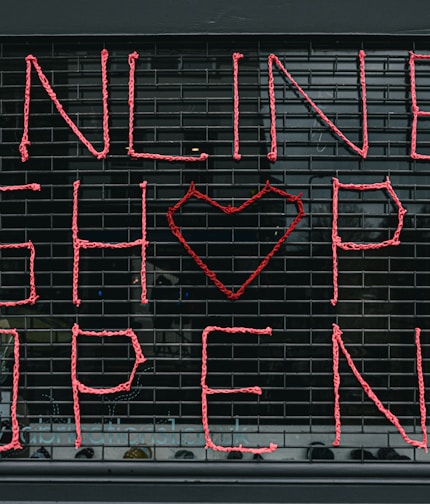 NLINE
SH♥P
OPEN